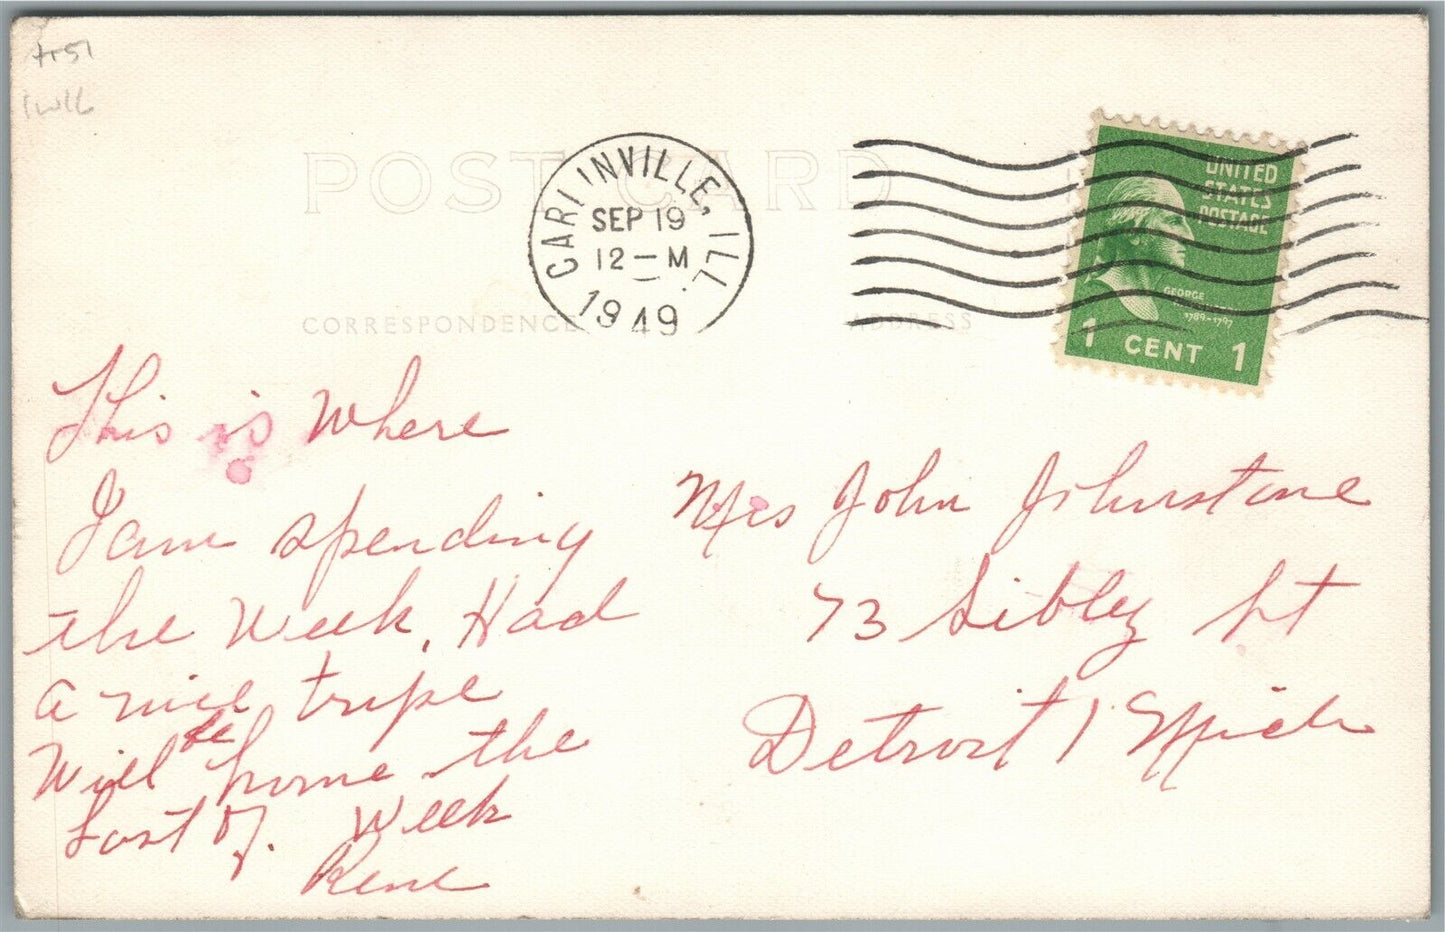 POST CARD
CARLINVILLE, ILL.
SEP 19
12 — M
1949
UNITED
STATES
POSTAGE
GEORGE
1789-1797
1 CENT 1
CORRESPONDENCE
ADDRESS
This is Where
I am spending
the Week, Had
a nice tripe
Will be home the
Last of. Week
Rene
Mrs John Johnstone
73 Sibley St
Detroit 1 Mich